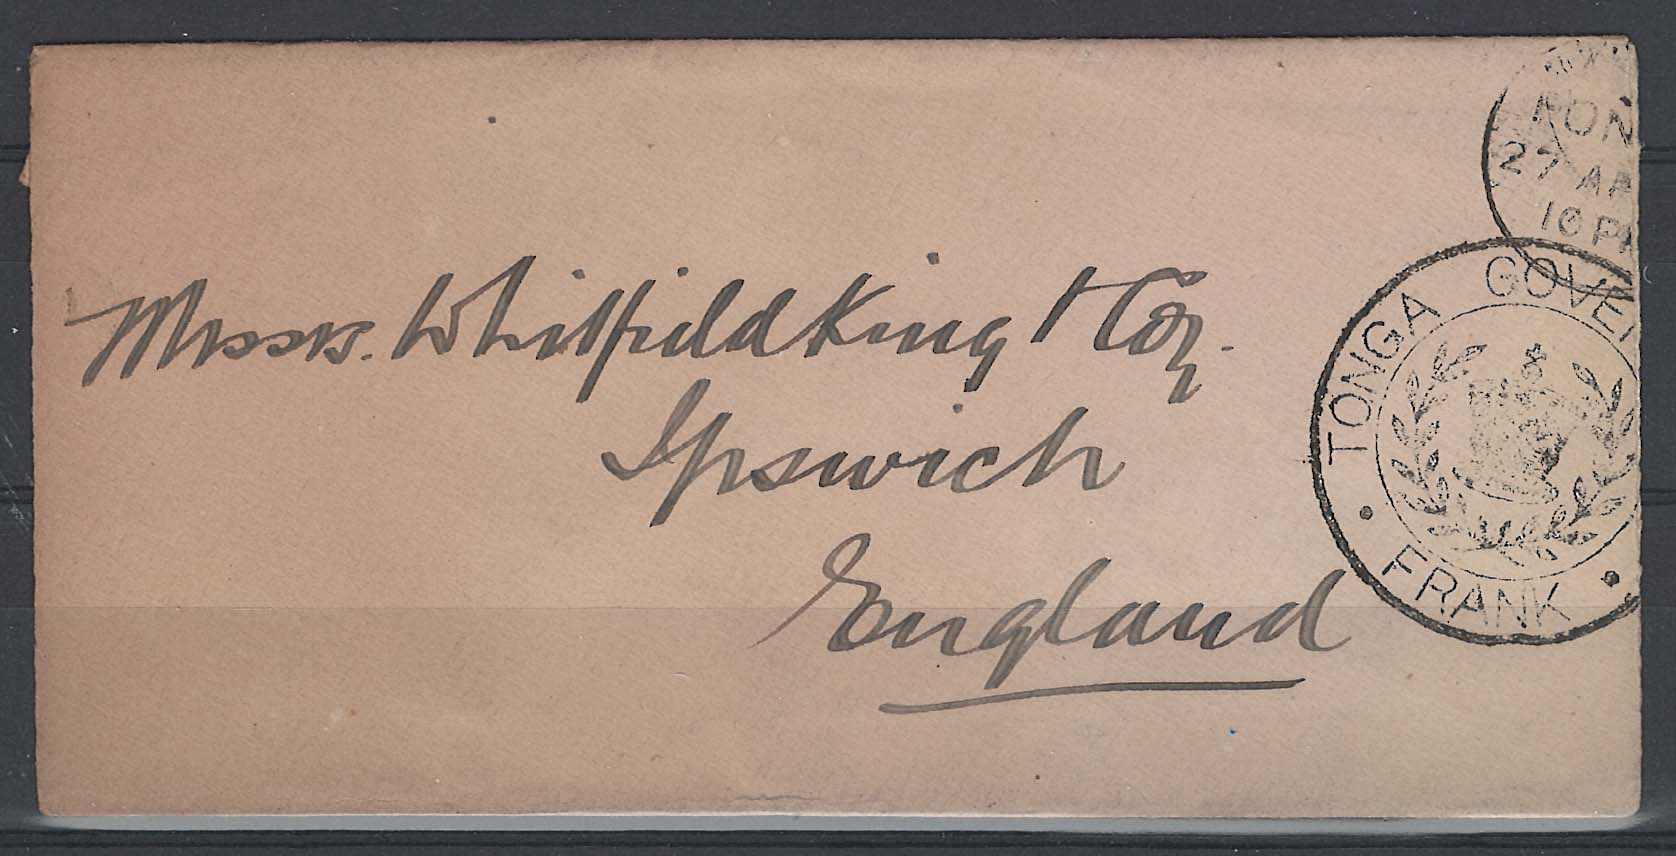 27 AP
10 P
TONGA GOVER
FRANK
Messrs. Whitfield King & Co.
Ipswich
England